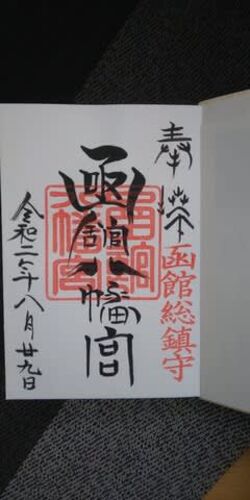 奉拝
函館総鎮守
函館八幡宮
令和二年八月廿九日